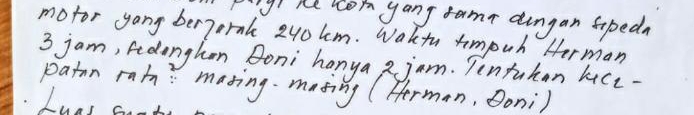 pergi ke kota yang sama dengan sepeda
motor yang berjarak 240 km. Waktu tempuh Herman
3 jam, sedangkan Doni hanya 2 jam. Tentukan kece-
patan rata² masing-masing (Herman, Doni)
Luas suatu